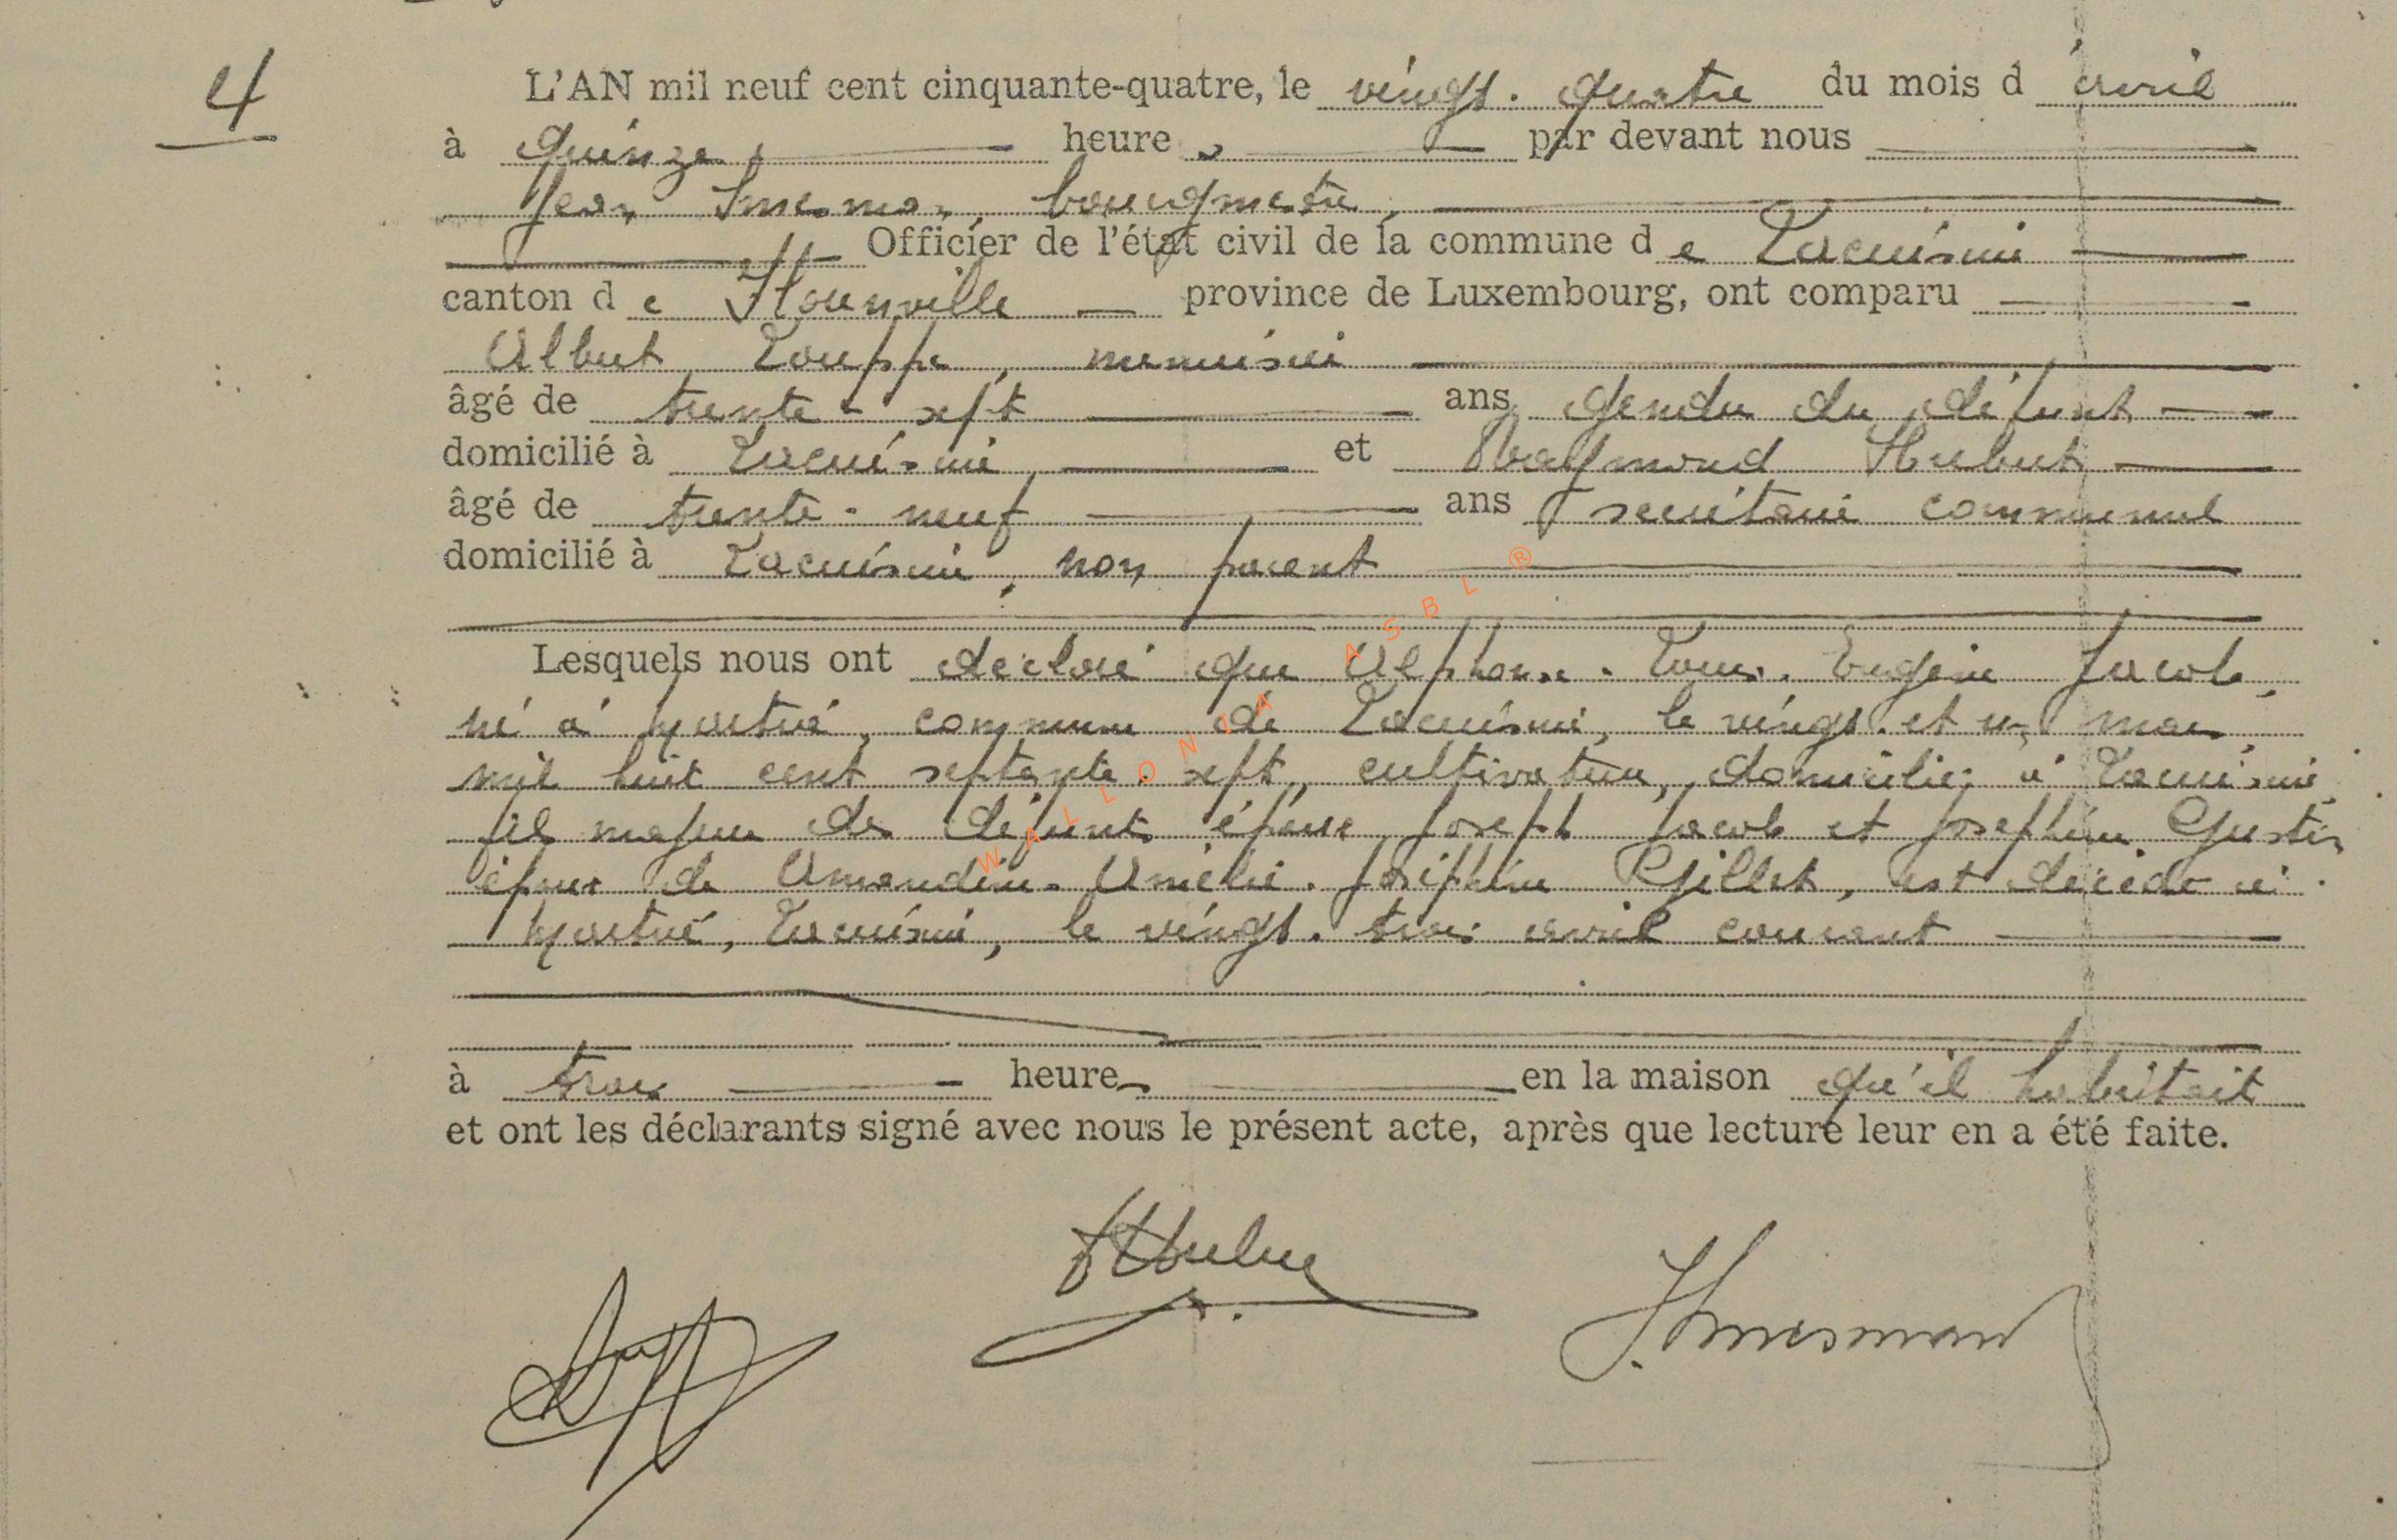 4
L'AN mil neuf cent cinquante-quatre, le vingt-quatre du mois d avril
à quinze heure s par devant nous
Jean Smesman, bourgmestre,
Officier de l'état civil de la commune d e Lacuisine
canton d e Florenville province de Luxembourg, ont comparu
Albert Louppe, menuisier
âgé de trente-sept ans, gendre du défunt
domicilié à Lacuisine et Raymond Hubert
âgé de trente-neuf ans secrétaire communal
domicilié à Lacuisine, non parent
Lesquels nous ont déclaré que Alphonse-Louis-Eugène Jacob,
né à Martué, commune de Lacuisine, le vingt et un mars
mil huit cent septante-sept, cultivateur, domicilié à Lacuisine,
fils majeur des défunts époux Joseph Jacob et Joséphine Gustin
époux de Amandine-Amélie-Joséphine Gillet, est décédé à
Martué, Lacuisine, le vingt-trois avril courant
à trois heures en la maison qu'il habitait
et ont les déclarants signé avec nous le présent acte, après que lecture leur en a été faite.
WALLONIA ASBL ®
J. Smesman